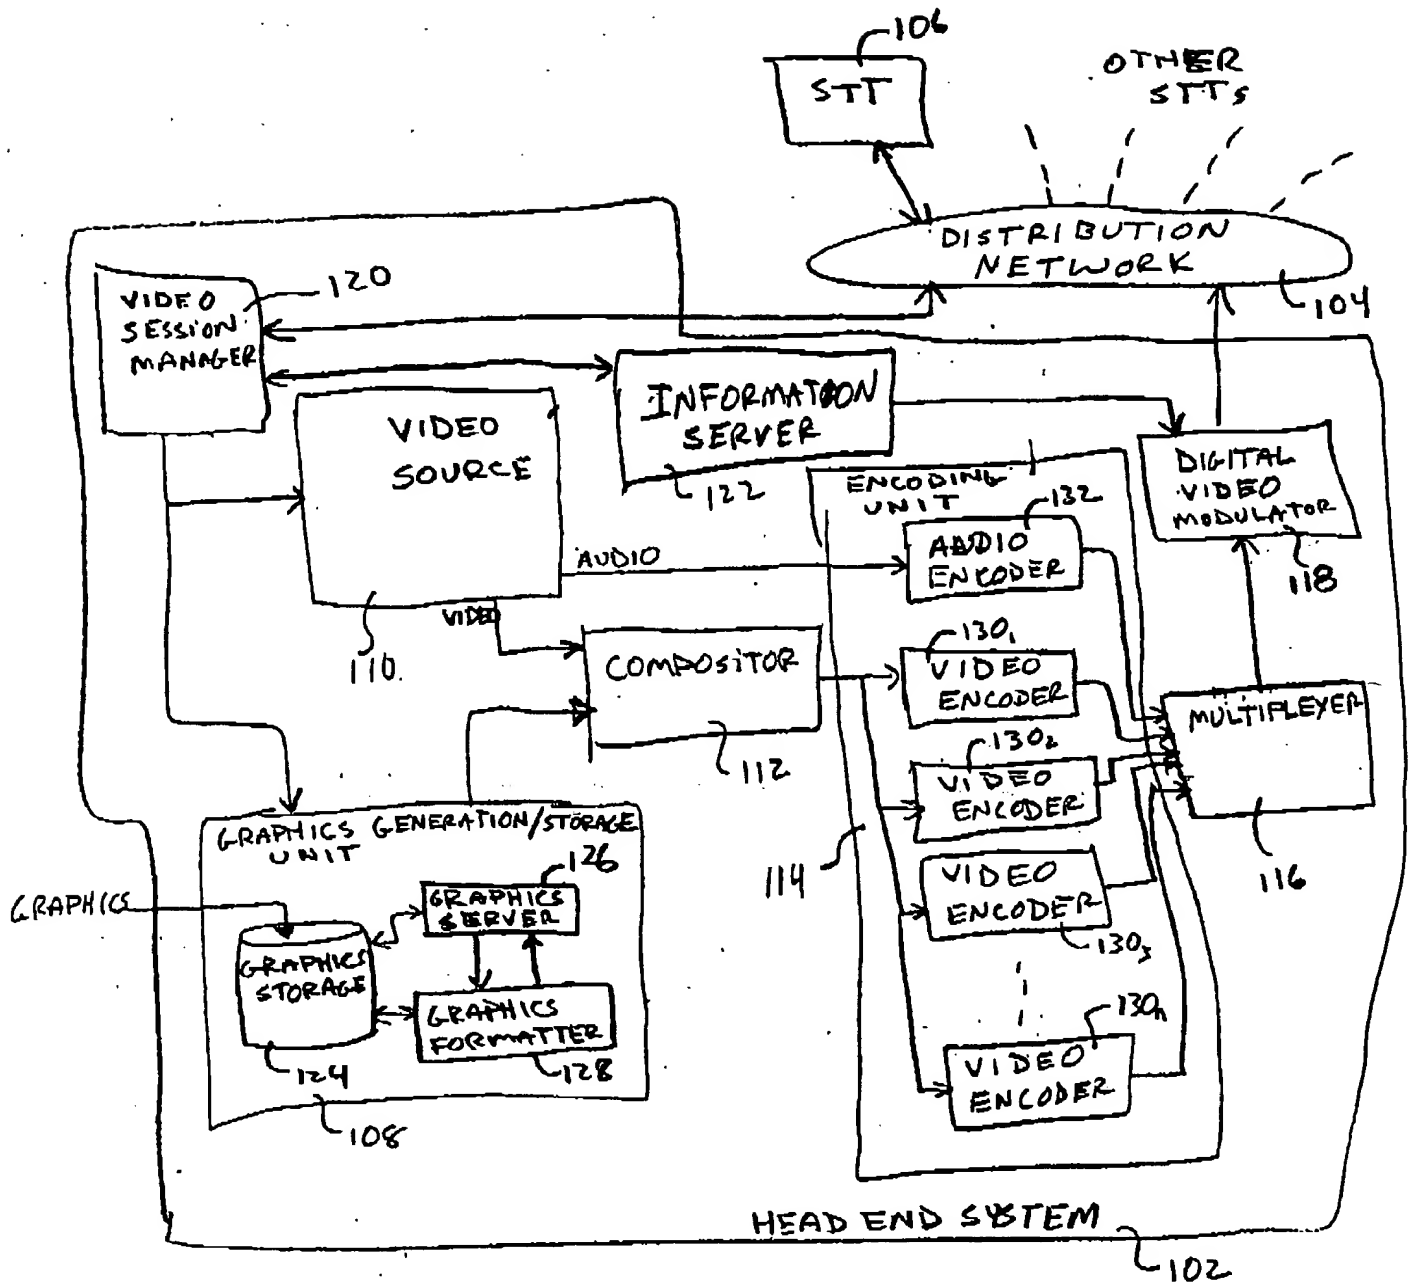 106
STT
OTHER
STTs
DISTRIBUTION
NETWORK
104
120
VIDEO
SESSION
MANAGER
INFORMATION
SERVER
122
VIDEO
SOURCE
110
AUDIO
VIDEO
ENCODING
UNIT
132
AUDIO
ENCODER
DIGITAL
VIDEO
MODULATOR
118
COMPOSITOR
112
130₁
VIDEO
ENCODER
130₂
VIDEO
ENCODER
VIDEO
ENCODER
130₃
130n
VIDEO
ENCODER
114
MULTIPLEXER
116
GRAPHICS GENERATION/STORAGE
UNIT
126
GRAPHICS
SERVER
GRAPHICS
GRAPHICS
STORAGE
124
GRAPHICS
FORMATTER
128
108
HEAD END SYSTEM
102